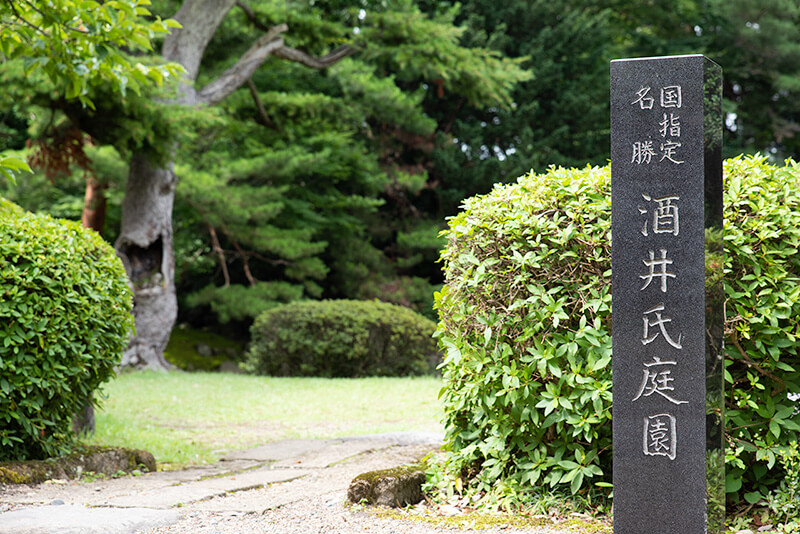 国指定
名勝
酒井氏庭園